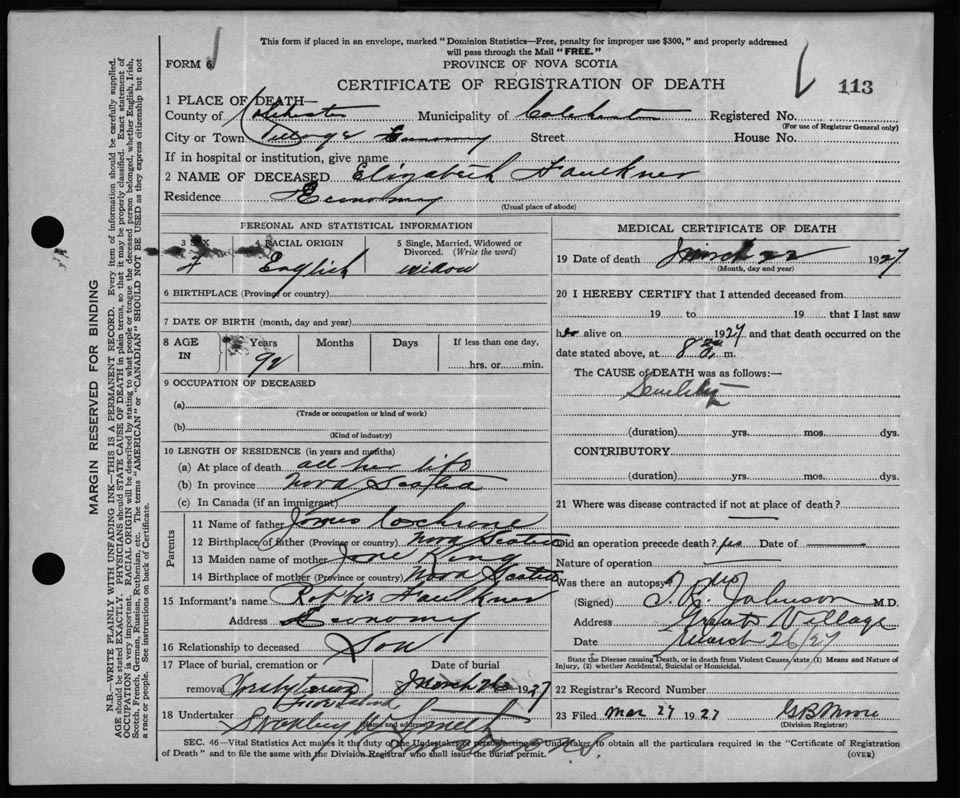 This form if placed in an envelope, marked "Dominion Statistics—Free, penalty for improper use $300," and properly addressed
will pass through the Mail "FREE."
FORM J
PROVINCE OF NOVA SCOTIA
CERTIFICATE OF REGISTRATION OF DEATH
113
1 PLACE OF DEATH—
County of Colchester Municipality of Colchester Registered No.
(For use of Registrar General only)
City or Town Village Economy Street House No.
If in hospital or institution, give name
2 NAME OF DECEASED Elizabeth Faulkner
Residence Economy
(Usual place of abode)
PERSONAL AND STATISTICAL INFORMATION
3 SEX 4 RACIAL ORIGIN 5 Single, Married, Widowed or Divorced. (Write the word)
F English widow
6 BIRTHPLACE (Province or country)
7 DATE OF BIRTH (month, day and year)
8 AGE IN Years Months Days If less than one day,
92 hrs. or min.
9 OCCUPATION OF DECEASED
(a)
(Trade or occupation or kind of work)
(b)
(Kind of industry)
10 LENGTH OF RESIDENCE (in years and months)
(a) At place of death all her life
(b) In province Nova Scotia
(c) In Canada (if an immigrant)
Parents
11 Name of father James Cochrane
12 Birthplace of father (Province or country) Nova Scotia
13 Maiden name of mother Jane King
14 Birthplace of mother (Province or country) Nova Scotia
15 Informant's name Faulkner
Address Economy
16 Relationship to deceased Son
17 Place of burial, cremation or removal Date of burial
March 26 1927
Five Island
18 Undertaker
(Name and address)
MEDICAL CERTIFICATE OF DEATH
19 Date of death March 22 1927
(Month, day and year)
20 I HEREBY CERTIFY that I attended deceased from
19 to 19 that I last saw
her alive on 1927 and that death occurred on the
date stated above, at 8 a. m.
The CAUSE of DEATH was as follows:—
Senility
(duration) yrs. mos. dys.
CONTRIBUTORY
(duration) yrs. mos. dys.
21 Where was disease contracted if not at place of death?
Did an operation precede death? no Date of
Nature of operation
Was there an autopsy? no
(Signed) T. R. Johnson M.D.
Address Great Village
Date March 26/27
State the Disease causing Death, or in death from Violent Causes, state (1) Means and Nature of
Injury, (2) whether Accidental, Suicidal or Homicidal.
22 Registrar's Record Number
23 Filed Mar 27 1927 G B Moore
(Division Registrar)
SEC. 46—Vital Statistics Act makes it the duty of the Undertaker or person acting as Undertaker to obtain all the particulars required in the "Certificate of Registration
of Death" and to file the same with the Division Registrar who shall issue the burial permit. (OVER)
MARGIN RESERVED FOR BINDING
N.B.—WRITE PLAINLY WITH UNFADING INK—THIS IS A PERMANENT RECORD. Every item of information should be carefully supplied.
AGE should be stated EXACTLY. PHYSICIANS should STATE CAUSE OF DEATH in plain terms, so that it may be properly classified. Exact statement of
OCCUPATION is very important. RACIAL ORIGIN will be described by stating to what people or tongue the deceased person belonged, whether English, Irish,
Scotch, French, German, Russian, Ruthenian, etc. The terms "AMERICAN" or "CANADIAN" SHOULD NOT BE USED as they express citizenship but not
a race or people. See instructions on back of Certificate.